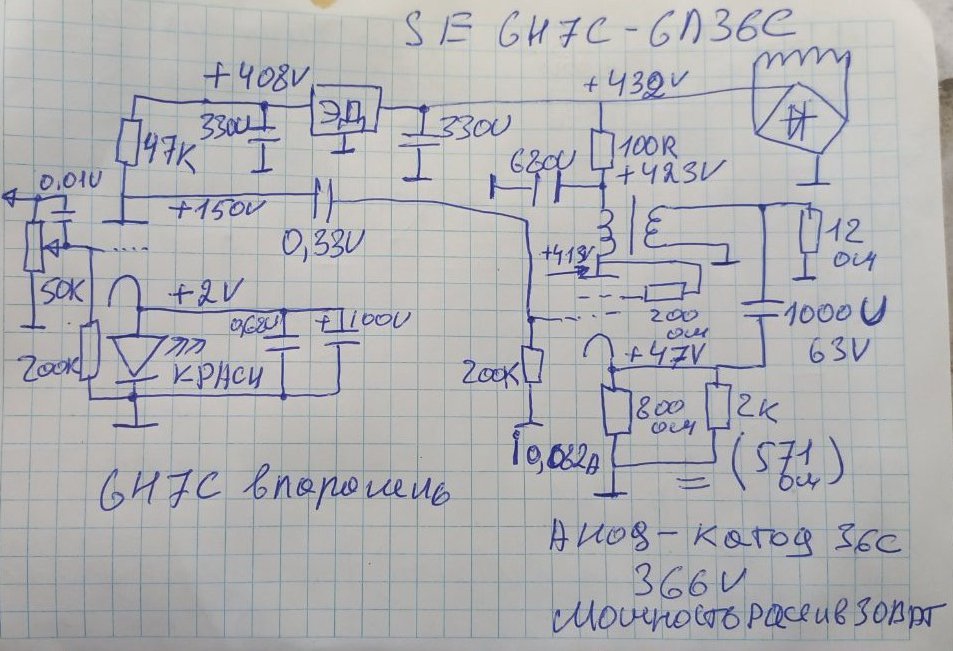 SE 6Н7С - 6П36С
+408V
+432V
ЭД
330U
330U
47K
100R
680U
+423V
0,01U
+150V
0,33U
+418V
12
ом
50K
+2V
200
ом
1000U
63V
0,68U
+ 100U
+47V
200K
КРАСН
200K
800
ом
2K
0,082А
= (571
ом)
6Н7С впаролель
Анод - катод 36С
366V
Мощность рассив 30Ватт